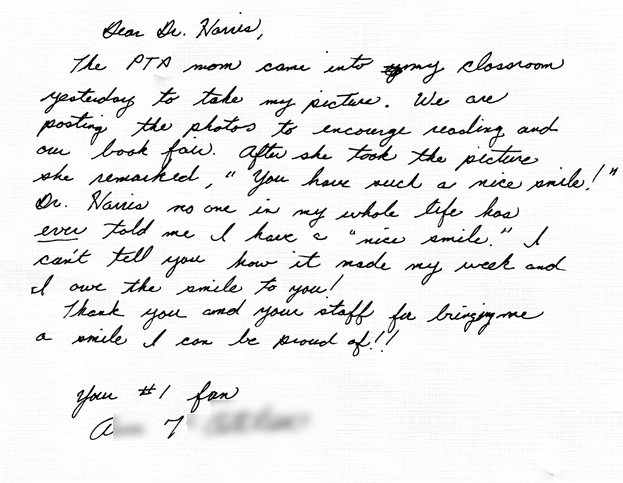 Dear Dr. Harris,
The PTA mom came into my classroom
yesterday to take my picture. We are
posting the photos to encourge reading and
our book fair. After she took the picture
she remarked, "You have such a nice smile!"
Dr. Harris no one in my whole life has
ever told me I have a "nice smile." I
can't tell you how it made my week and
I owe the smile to you!
Thank you and your staff for bringing me
a smile I can be proud of!!
Your #1 fan